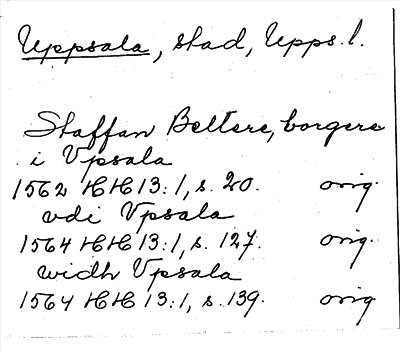 Uppsala, stad, Upps. l.
Staffan Beltere, borgere
i Vpsala
1562 HH 13:1, s. 20. orig.
vdi Vpsala
1564 HH 13:1, s. 127. orig.
widh Vpsala
1564 HH 13:1, s. 139. orig